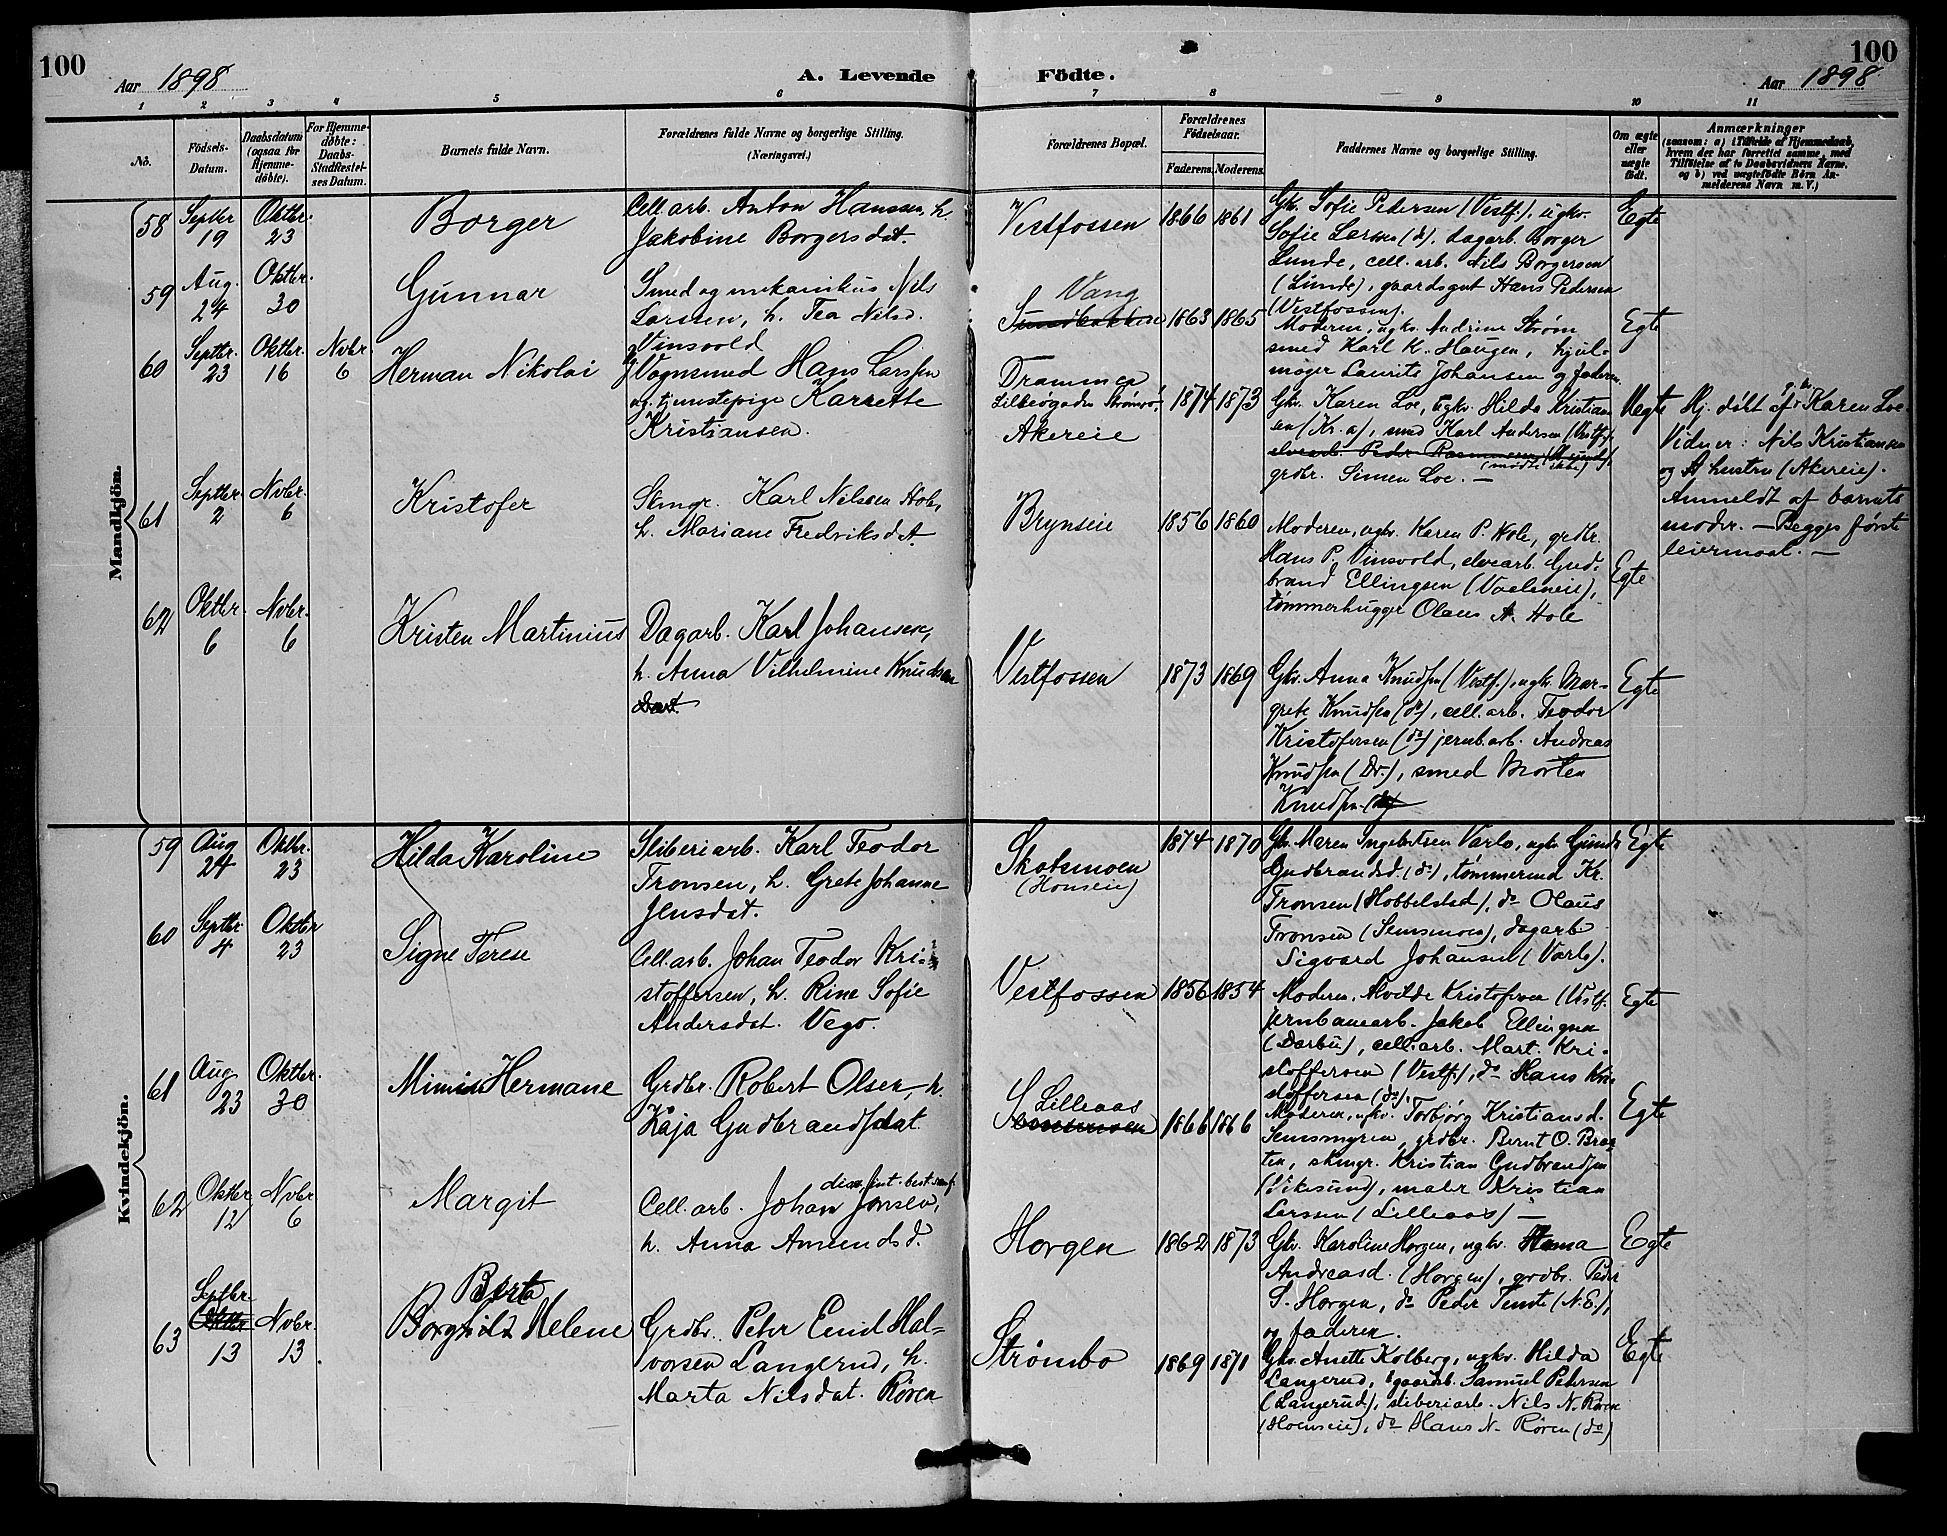 100
Aar 1898
A. Levende Födte.
100
Aar 1898
1 2 3 4 5 6 7 8 9 10 11
No.
Födsels-Datum.
Daabsdatum (ogsaa for Hjemme-döbte).
For Hjemme-döbte: Daabs-Stadfæstel-ses Datum.
Barnets fulde Navn.
Forældrenes fulde Navne og borgerlige Stilling. (Næringsvei.)
Forældrenes Bopæl.
Forældrenes Födselsaar.
Faderens. Moderens.
Faddernes Navne og borgerlige Stilling.
Om ægte eller uægte födt.
Anmærkninger
(saasom: a) i Tilfælde af Hjemmedaab, hvem der har forrettet samme, med Tilföielse af to Daabsvidners Navne, og b) ved uægtefödte Börn An-melderens Navn m. V.)
Mandkjön.
58
Septbr. 19
Oktbr. 23
Borger
Cell.arb. Anton Hanssen, h.
Jakobine Borgersdat.
Vestfossen
1866 1861
Gkv. Sofie Pedersen (Vestf.), ugkv.
Sofie Larsen (do), dagarb. Borger
Lunde, cell.arb. Nils Borgersen
(Lunde), gaardsgut Hans Pedersen
(Vestfossen).
Egte
59
Aug. 24
Oktbr. 30
Gunnar
Smed og mekanikus Nils
Larssen, h. Tea Nilsd.
Vinsvold
Vang
1863 1865
Moderen, ugkv. Andrine Strøm
smed Karl K. Haugen, hjul-
mager Laurits Johansen og faderen.
Egte
60
Septbr. 23
Oktbr. 16
Nvbr. 6
Herman Nikolai
Vognsmed Hans Larssen
og tjenestepige Karette
Kristiansen.
Drammen
Akereie
1874 1873
Gkv. Karen Loe, ugkv. Hilda Kristian
sen (Kr.a), smed Karl Andersen (Vestf.)
elvearb. Peder Rasmussen
(mødte ikke)
grdbr. Simen Loe. —
Uegte
Hj. døbt af Karen Loe.
Vidner: Nils Kristiansen
og hustru (Akereie).
Anmeldt af barnets
moder. — Begges første
leiermaal. —
61
Septbr. 2
Nvbr. 6
Kristofer
Skmgr. Karl Nilssen Hole,
h. Mariane Fredriksdat.
Brynseie
1856 1860
Moderen, ugkv. Karen P. Hole, grdbr.
Hans P. Vinsvold, elvearb. Gud-
brand Ellingsen
tømmerhugger Olaus A. Hole
Egte
62
Oktbr. 6
Nvbr. 6
Kristen Martinius
Dagarb. Karl Johansen,
h. Anna Vilhelmine Knudsen
Vestfossen
1873 1869
Gkv. Anna Knudsen (Vestf.), ugkv. Mar-
grete Knudsen (do), cell.arb. Teodor
Kristofersen (do) jernb.arb. Andreas
Knudsen (Dr.), smed Morten
Knudsen
Egte
Kvindekjön.
59
Aug. 24
Oktbr. 23
Hilda Karoline
Sliberiarb. Karl Teodor
Tronsen, h. Grete Johanne
Jensdat.
Skotsmoen
(Honseie)
1874 1870
Gkv. Maren Ingebretsen Varlo, ugkv. Gunda
Gudbrandsd. (do), tømmermd Kr.
Tronsen (Hobbelstad), do Olaus
Tronsen (Semsmoen), dagarb
Sigvard Johansen (Varlo).
Egte
60
Septbr. 4
Oktbr 23
Signe Terese
Cell.arb. Johan Teodor Kri-
stoffersen, h. Rine Sofie
Andersdat. Vego.
Vestfossen
1856 1854
Moderen, Kristofersen (Vestf.
jernbanearb. Jakob Ellingsen
(Darbu), cell.arb. Mart. Kri-
stoffersen (Vestf.), do Hans Kri-
stoffersen (do).
Egte
61
Aug 23
Oktbr. 30
Mimi Hermane
Grdbr. Robert Olsen, h.
Kaja Gudbrandsdat.
Lilleaas
1866 1866
Moderen, ugkv. Torbjørg Kristiansd.
Semsmyren, grdbr. Bernt O. Braa-
ten, skmgr. Kristian Gudbrandsen
(Vikesund), maler Kristian
Larssen (Lilleaas) —
Egte
62
Oktbr 12
Nvbr 6
Margit
Cell.arb. Johan Jonsen,
h. Anna Amundsd.
Horgen
1862 1873
Gkv. Karoline Horgen, ugkv. Anna
Andreasd. (Horgen), grdbr. Peder
S. Horgen, do Peder Temte (N.E.),
og faderen.
Egte
63
Septbr 13
Nvbr. 13.
Berta
Borghild Helene
Grdbr. Peter Emil Hal-
vorsen Langerud, h.
Marta Nilsdat. Røren
Strømbo
1869 1871
Gkv. Anette Kolberg, ugkv. Hilda
Langerud, gaardb. Samuel Petersen
(Langerud), sliberiarb. Nils N. Røren
(Hoenseie), do Hans N. Røren (do)
Egte